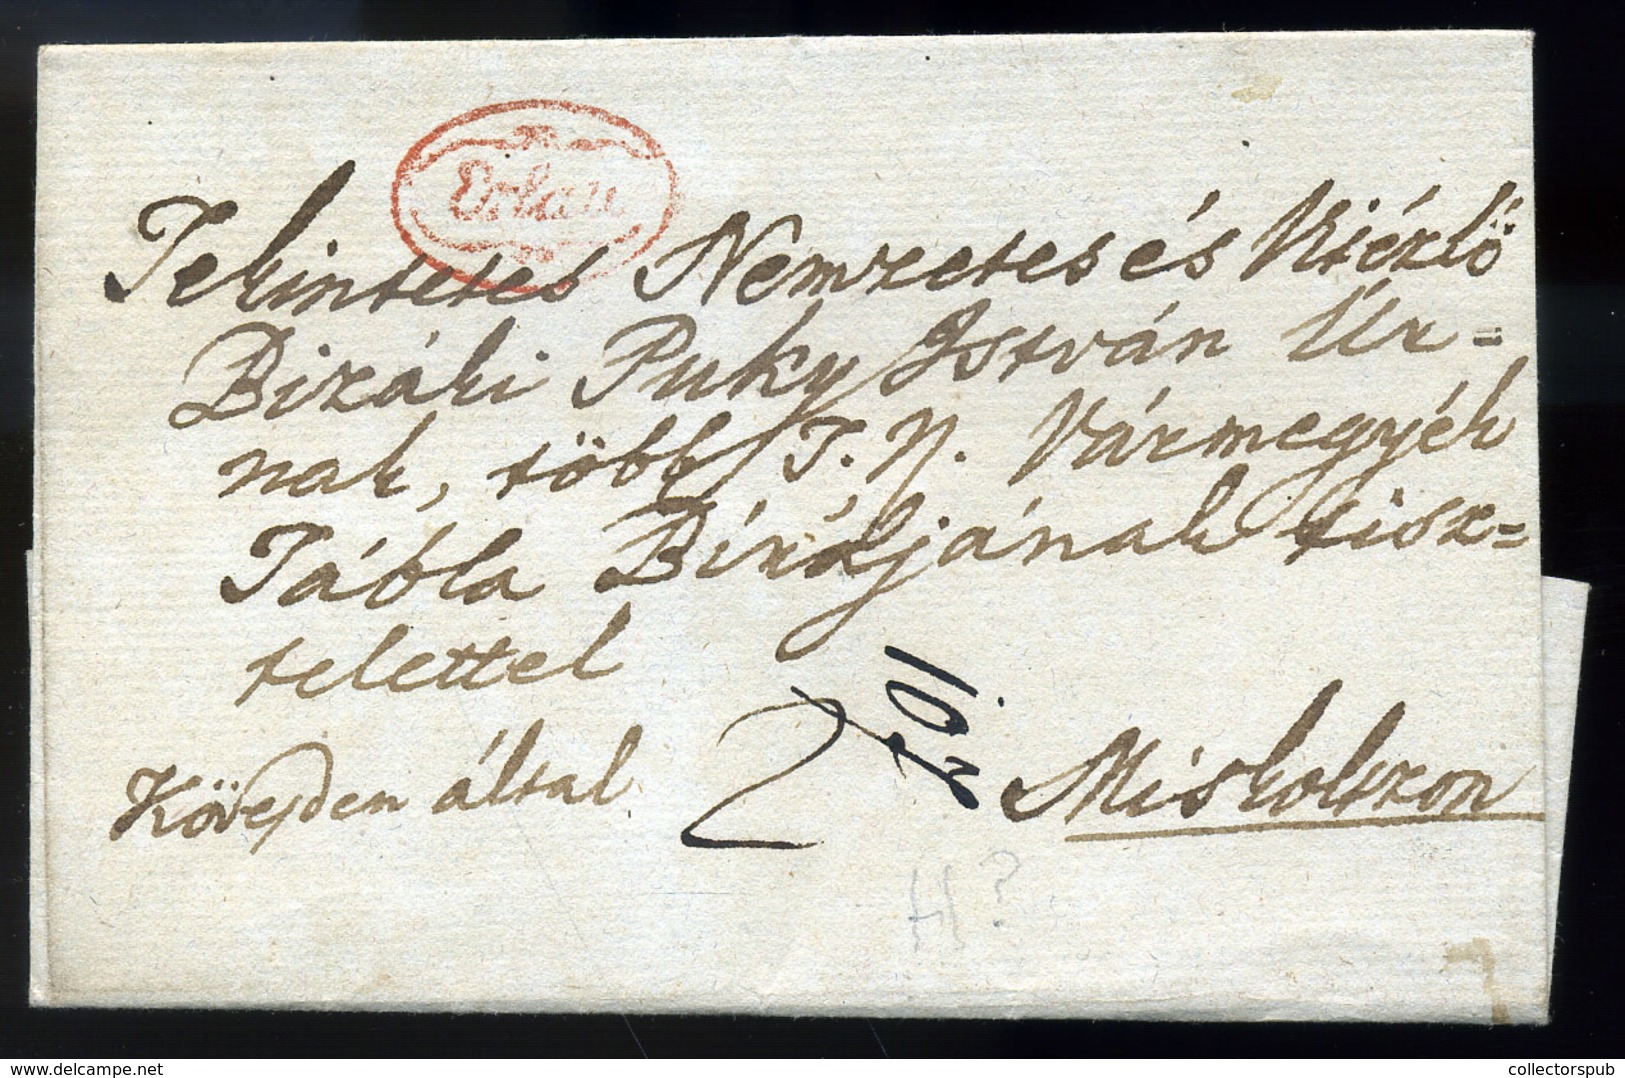 Erlau
Tekintetes Nemzetes és Vitézlő
Bizáki Puky István Úr=
nak, több T. N. Vármegyék
Tábla Bírájának tisz=
telettel
Kövesden által 2 Miskoltzon
collectorspub.com